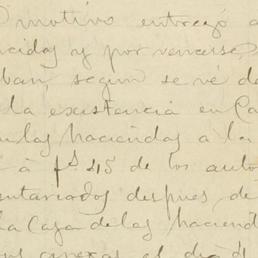 motivo entregó a
cidas y por vencerse,
ban, segun se vé d
la existencia en Ca
las haciendas a la
à fs 45 de los auto
entariados despues de
la Caja de las haciend